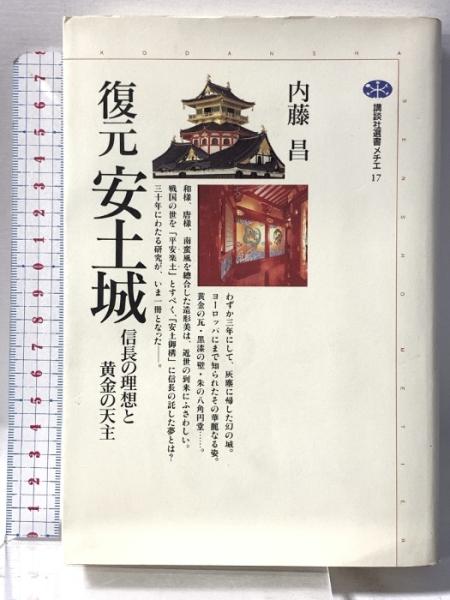 KODANSHA
SENSHO METIER
講談社選書メチエ
17
内藤 昌
復元 安土城
信長の理想と
黄金の天主
わずか三年にして、灰塵に帰した幻の城。
ヨーロッパにまで知られたその華麗なる姿。
黄金の瓦・黒漆の壁・朱の八角円堂……。
和様、唐様、南蛮風を総合した造形美は、近世の到来にふさわしい。
戦国の世を「平安楽土」とすべく、「安土御構」に信長の託した夢とは?
三十年にわたる研究が、いま一冊となった――。